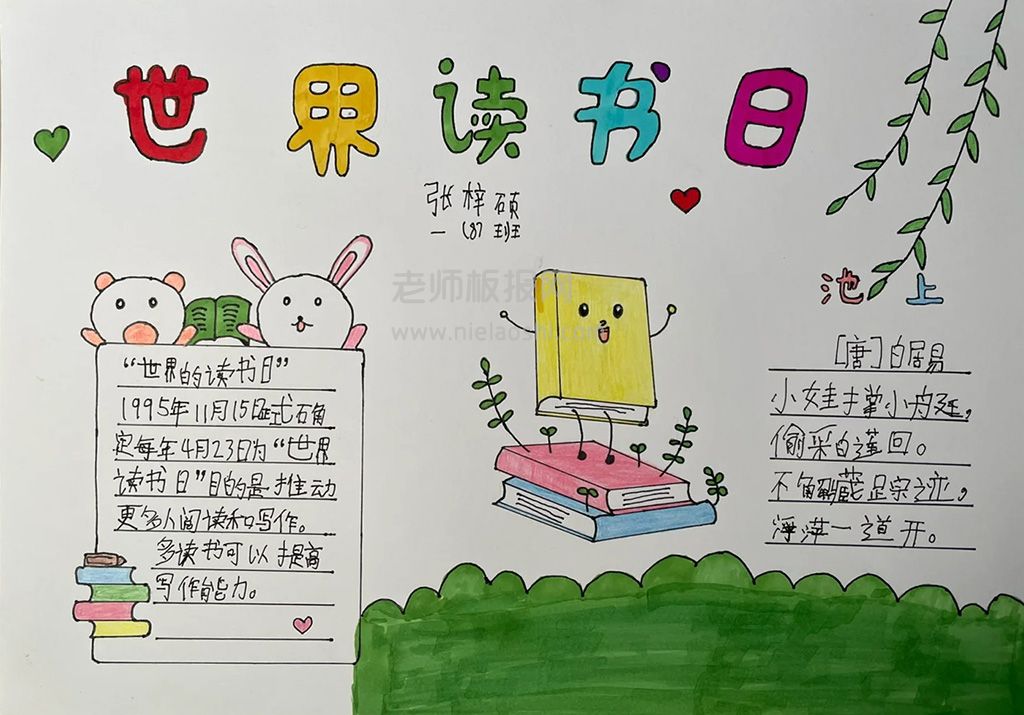 世界读书日
张梓硕
一(8)班
老师板报网
www.nielaoshi.com
“世界的读书日”
1995年11月15日正式石角
定每年4月23日为“世界
读书日”目的是推动
更多人阅读和写作。
多读书可以提高
写作能力。
池上
[唐]白居易
小娃撑小艇,
偷采白莲回。
不解藏踪迹,
浮萍一道开。